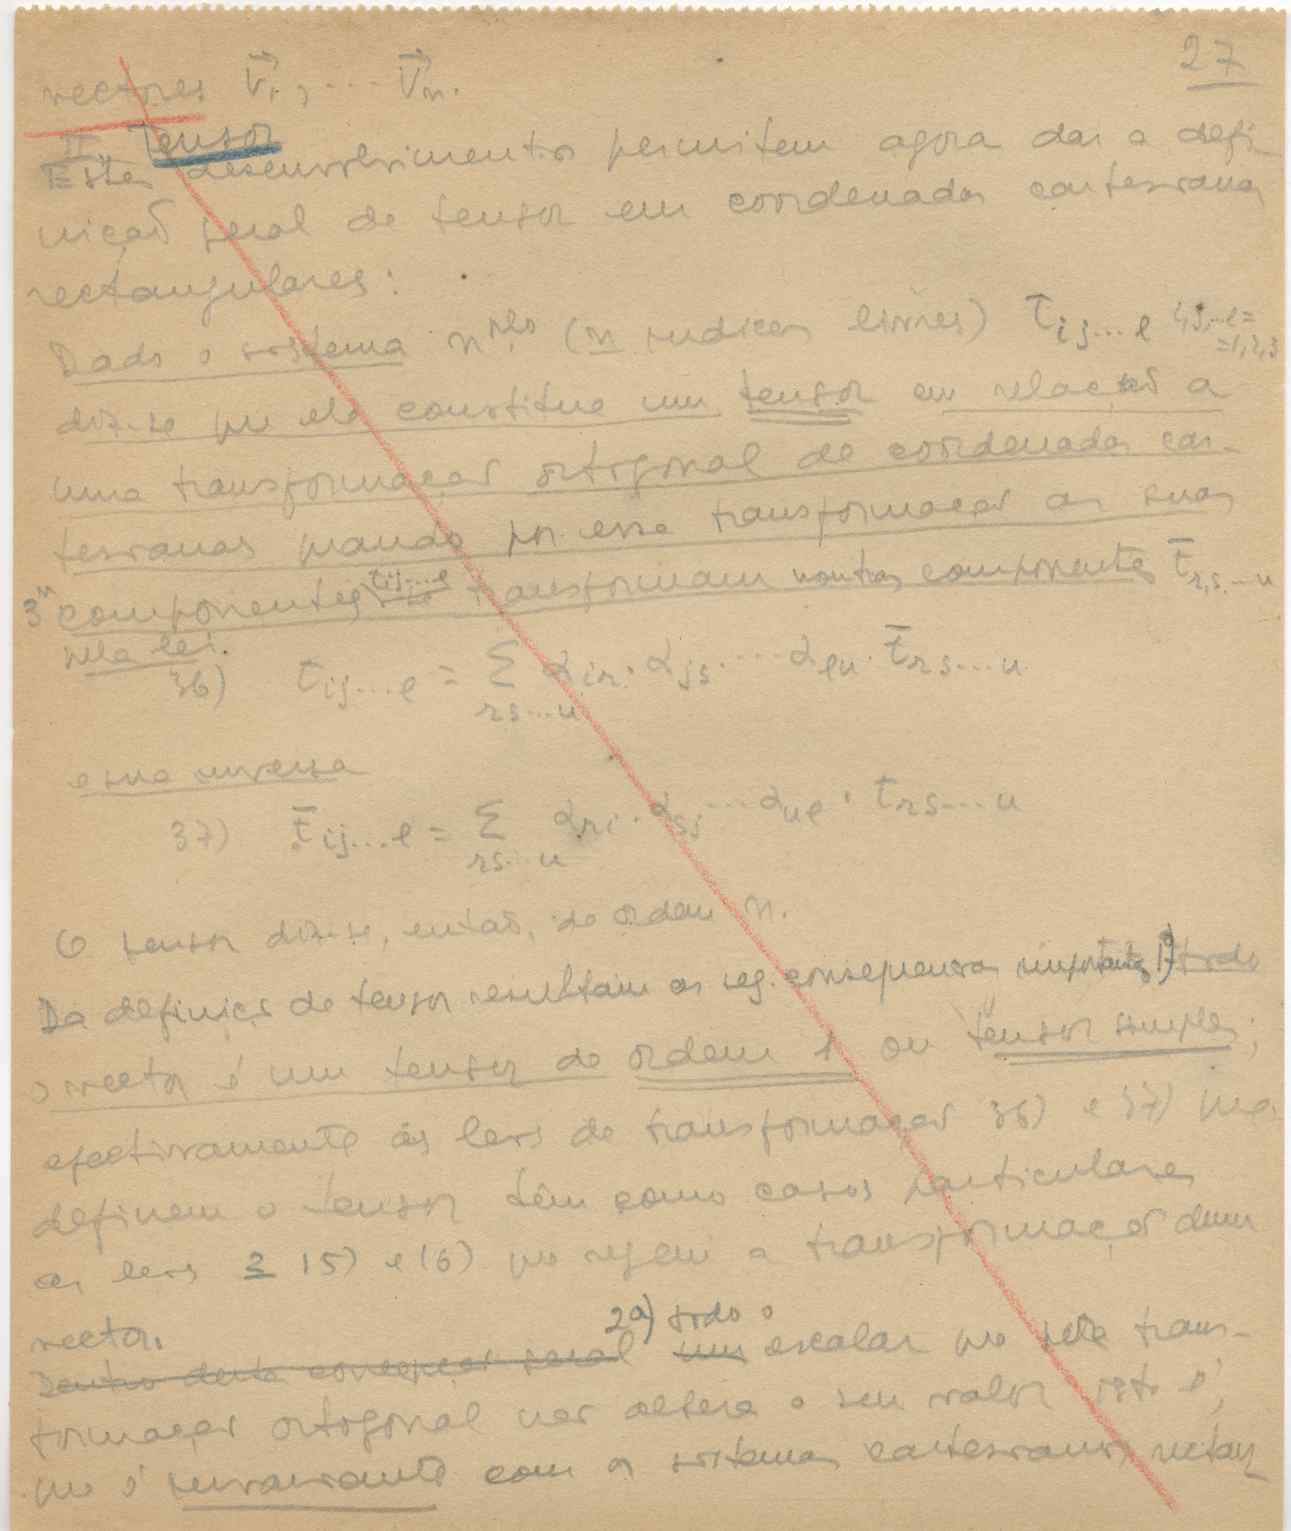 27
vectores V⃗₁, ... V⃗ₙ.
II. Tensor
Estes desenvolvimentos permitem agora dar a defi-
nição geral de tensor em coordenadas cartesianas
rectangulares:
Dado o sistema n^plo (n indices livres) t_ij...l i,j,...l= =1,2,3
diz-se que ele constitue um tensor em relação a
uma transformação ortogonal de coordenadas car-
tesianas quando por essa transformação as suas
3ⁿ componentes t_ij...l se transformam noutras componentes t̄_r,s...u
pela lei.
36) t_ij...l = Σ_rs...u α_ir · α_js ··· α_lu · t̄_rs...u
e sua inversa
37) t̄_ij...l = Σ_rs...u α_ri · α_sj ··· α_ul · t_rs...u
O tensor diz-se, então, de ordem n.
Da definição de tensor resultam as seg. consequencias importantes 1ª) todo
o vector é um tensor de ordem 1 ou tensor simples;
efectivamente as leis de transformação 36) e 37) que
definem o tensor têm como casos particulares
as leis 2 15) e 16) que regem a transformação dum
vector.
2ª) todo o
Dentro desta concepção geral um escalar que pela trans-
formação ortogonal não altera o seu valor isto é,
que é invariante com os sistemas cartesianos rectan